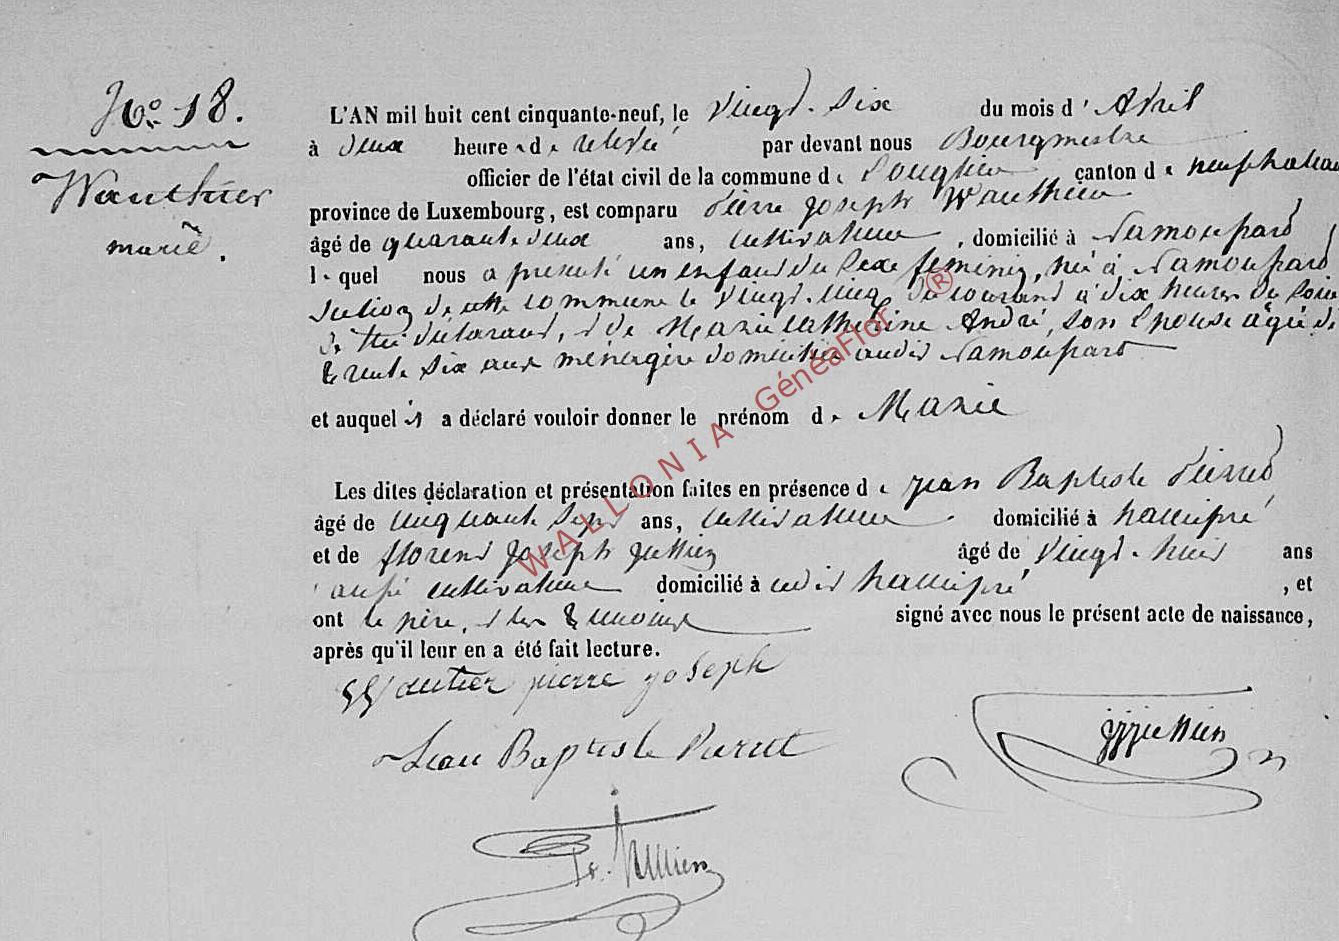 N° 18.
Wauthier
marie.
L'AN mil huit cent cinquante-neuf, le vingt-six du mois d' Avril
à deux heures de relevée par devant nous Bourgmestre
officier de l'état civil de la commune de Longlier canton de neufchateau
province de Luxembourg, est comparu Pierre Joseph Wauthier
âgé de quarante deux ans, cultivateur, domicilié à Namoupard
lequel nous a présenté un enfant du sexe féminin, née à Namoupard
section de cette commune le vingt-cinq du courant à dix heures du soir
de lui déclarant, et de Marie Catherine André, son épouse agée de
trente six ans ménagère domiciliée audit Namoupard
et auquel il a déclaré vouloir donner le prénom de Marie
Les dites déclaration et présentation faites en présence de jean Baptiste Pierret
âgé de cinquante sept ans, cultivateur domicilié à hamipré
et de florent joseph jullien âgé de vingt-huit ans
aussi cultivateur domicilié à audit hamipré, et
ont le père, et les témoins signé avec nous le présent acte de naissance,
après qu'il leur en a été fait lecture.
Wautier pierre joseph
Jean Baptiste Pierret
WALLONIA GénéaFlor ®